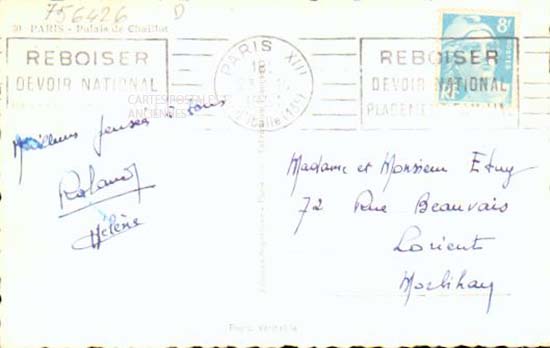 756426 D
30 PARIS - Palais de Chaillot
REBOISER
DEVOIR NATIONAL
PARIS XIII
18
REBOISER
DEVOIR NATIONAL
8F
POSTES
CARTES POSTALES
ANCIENNES
Meilleures pensées à tous
Roland
Hélène
Madame et Monsieur
72 Rue Beauvais
Lorient
Morbihan
Photo Véritable